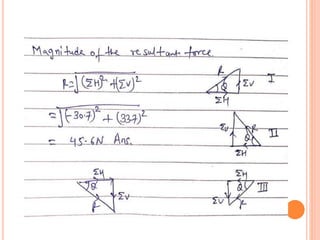 Magnitude of the resultant force
R = √(ΣH)² + (ΣV)²
= √(-30.7)² + (33.7)²
= 45.6N Ans.
R
θ
ΣV
ΣH
I
ΣV
R
θ
ΣH
II
ΣH
θ
ΣV
R
ΣH
θ
ΣV
R
III